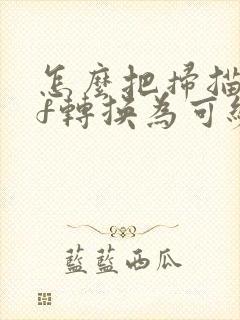 怎麼把掃描
f轉換為可
藍藍西瓜